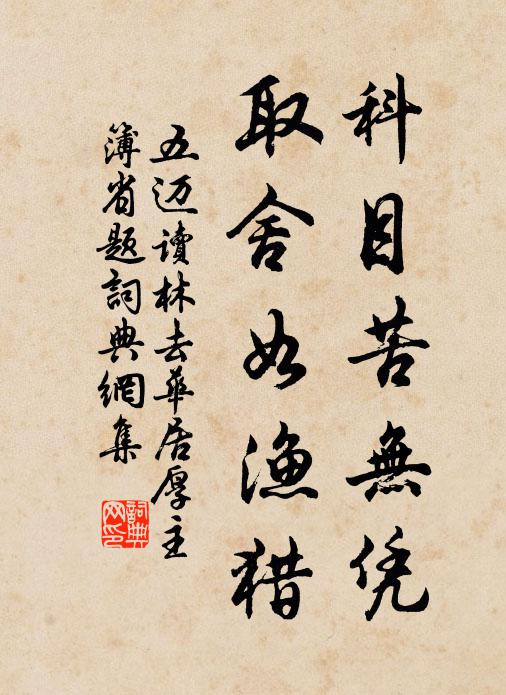 科目苦無凭
取舍如渔猎
五迈讀林去華居厚主
簿省题詞典網集
詞典
网印